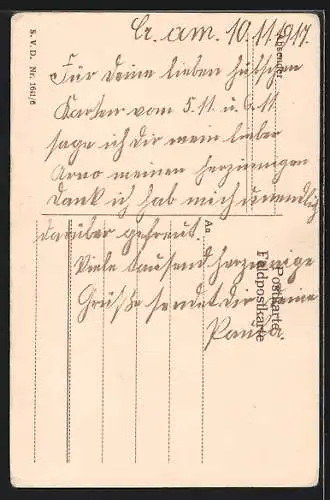 Cr. am. 10.11.1917.
Für deine lieben hübschen
Karten vom 5.11. u. 6.11.
sage ich dir mein lieber
Arno meinen herzinnigen
Dank ich hab mich unendlich
darüber gefreut.
Viele tausend herzinnige
Grüße sendet dir deine
Paula.
S. V. D. Nr. 1641/6
Absender:
An
Postkarte
Feldpostkarte